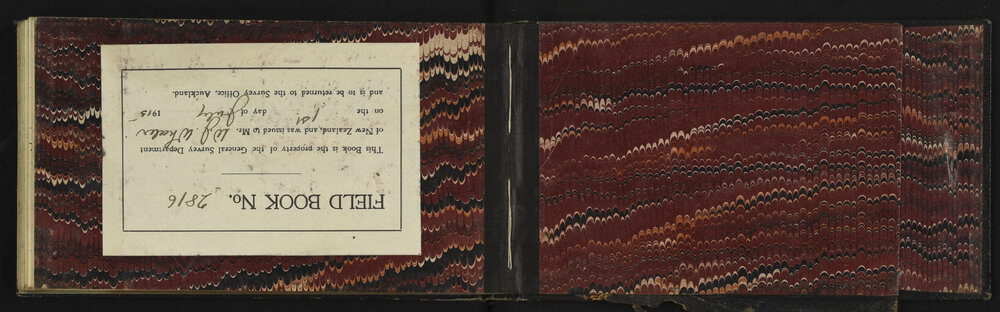 FIELD BOOK No. 2816
This Book is the property of the General Survey Department
of New Zealand, and was issued to Mr. W J Wheeler
on the 1st day of July 1915
and is to be returned to the Survey Office, Auckland.